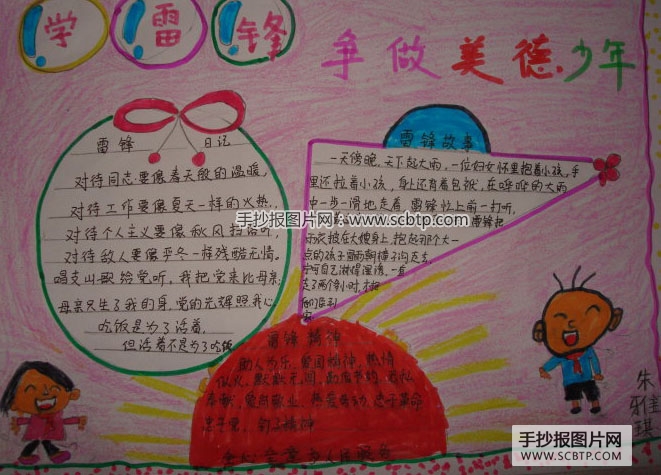 学雷锋
争做美德少年
雷锋 日记
对待同志要像春天般的温暖,
对待工作要像夏天一样的火热,
对待个人主义要像秋风扫落叶,
对待敌人要像严冬一样残酷无情。
唱支山歌给党听,我把党来比母亲;
母亲只生了我的身,党的光辉照我心
吃饭是为了活着,
但活着不是为了吃饭
雷锋故事
一天傍晚,天下起大雨,一位妇女怀里抱着小孩,手
里还拉着小孩,身上还背着包袱,在哗哗的大雨
中一步一滑地走着,雷锋忙上前一打听,
雷锋把
雨衣披在大嫂身上,抱起那个大一
点的孩子冒雨朝
自己淋得湿
走了两个小时,才把
手抄报图片网:www.scbtp.com
雷锋精神
助人为乐,爱国精神,热情
似火,默默无闻,勤俭节约,无私
奉献,爱岗敬业,热爱劳动,忠于革命
忠于党,钉子精神
全心全意为人民服务
朱
雅
琪
手抄报图片网
WWW.SCBTP.COM